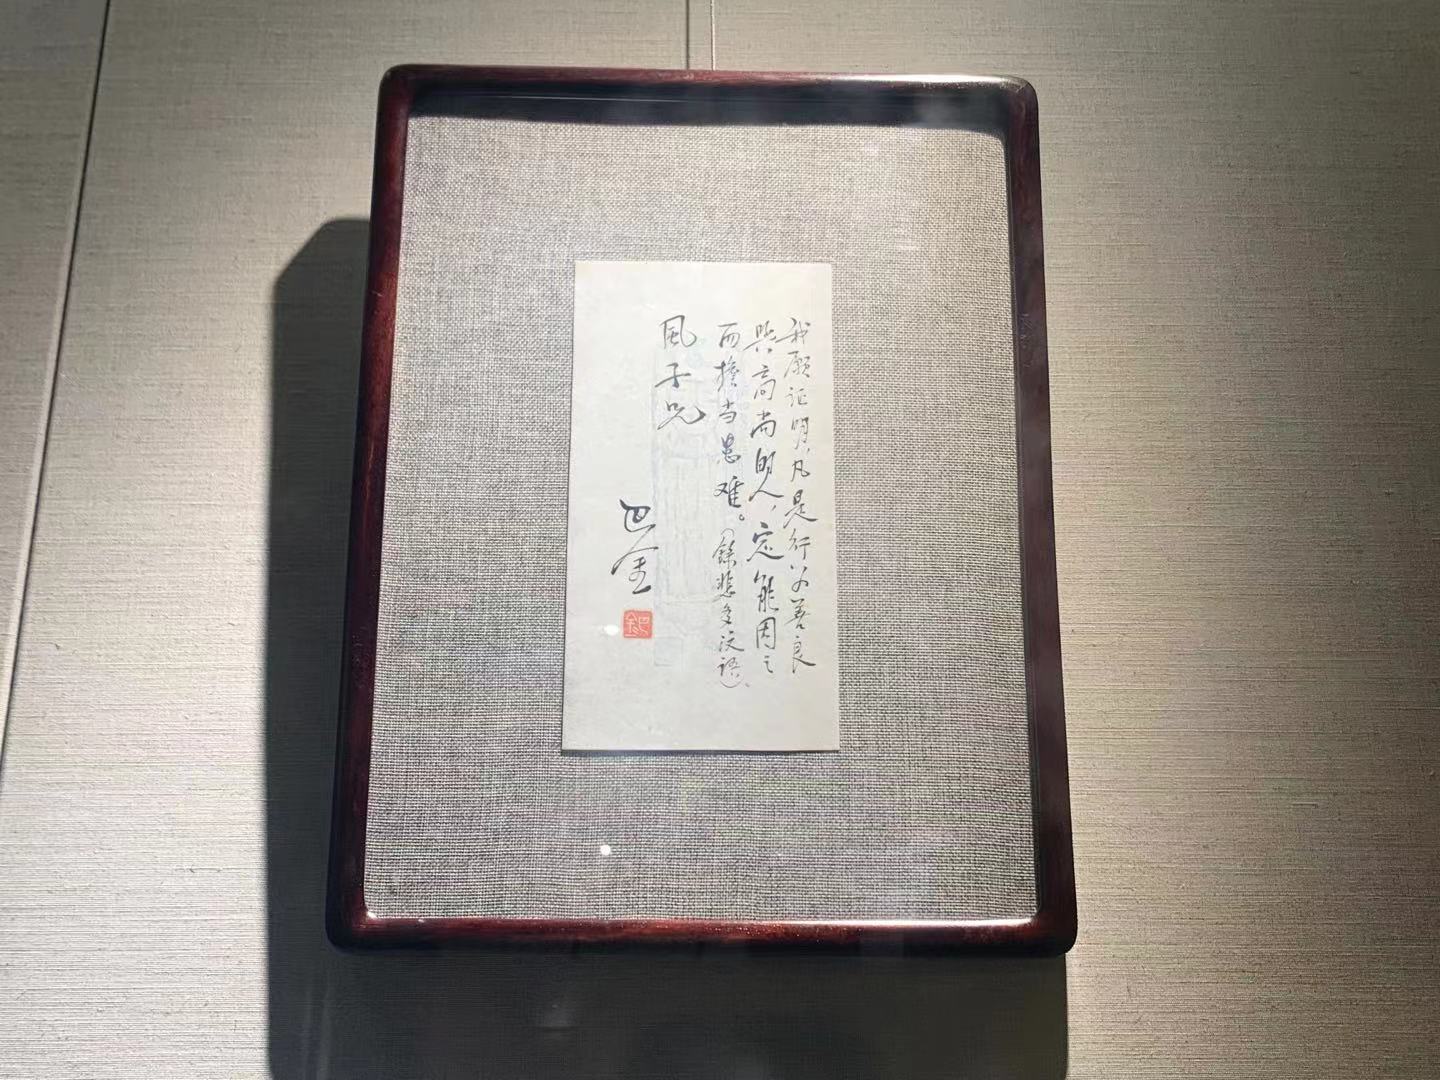 我愿证明，凡是行为善良
与高尚的人，定能因之
而担当患难。（录悲多汶语）、
風子兄
巴金
巴金